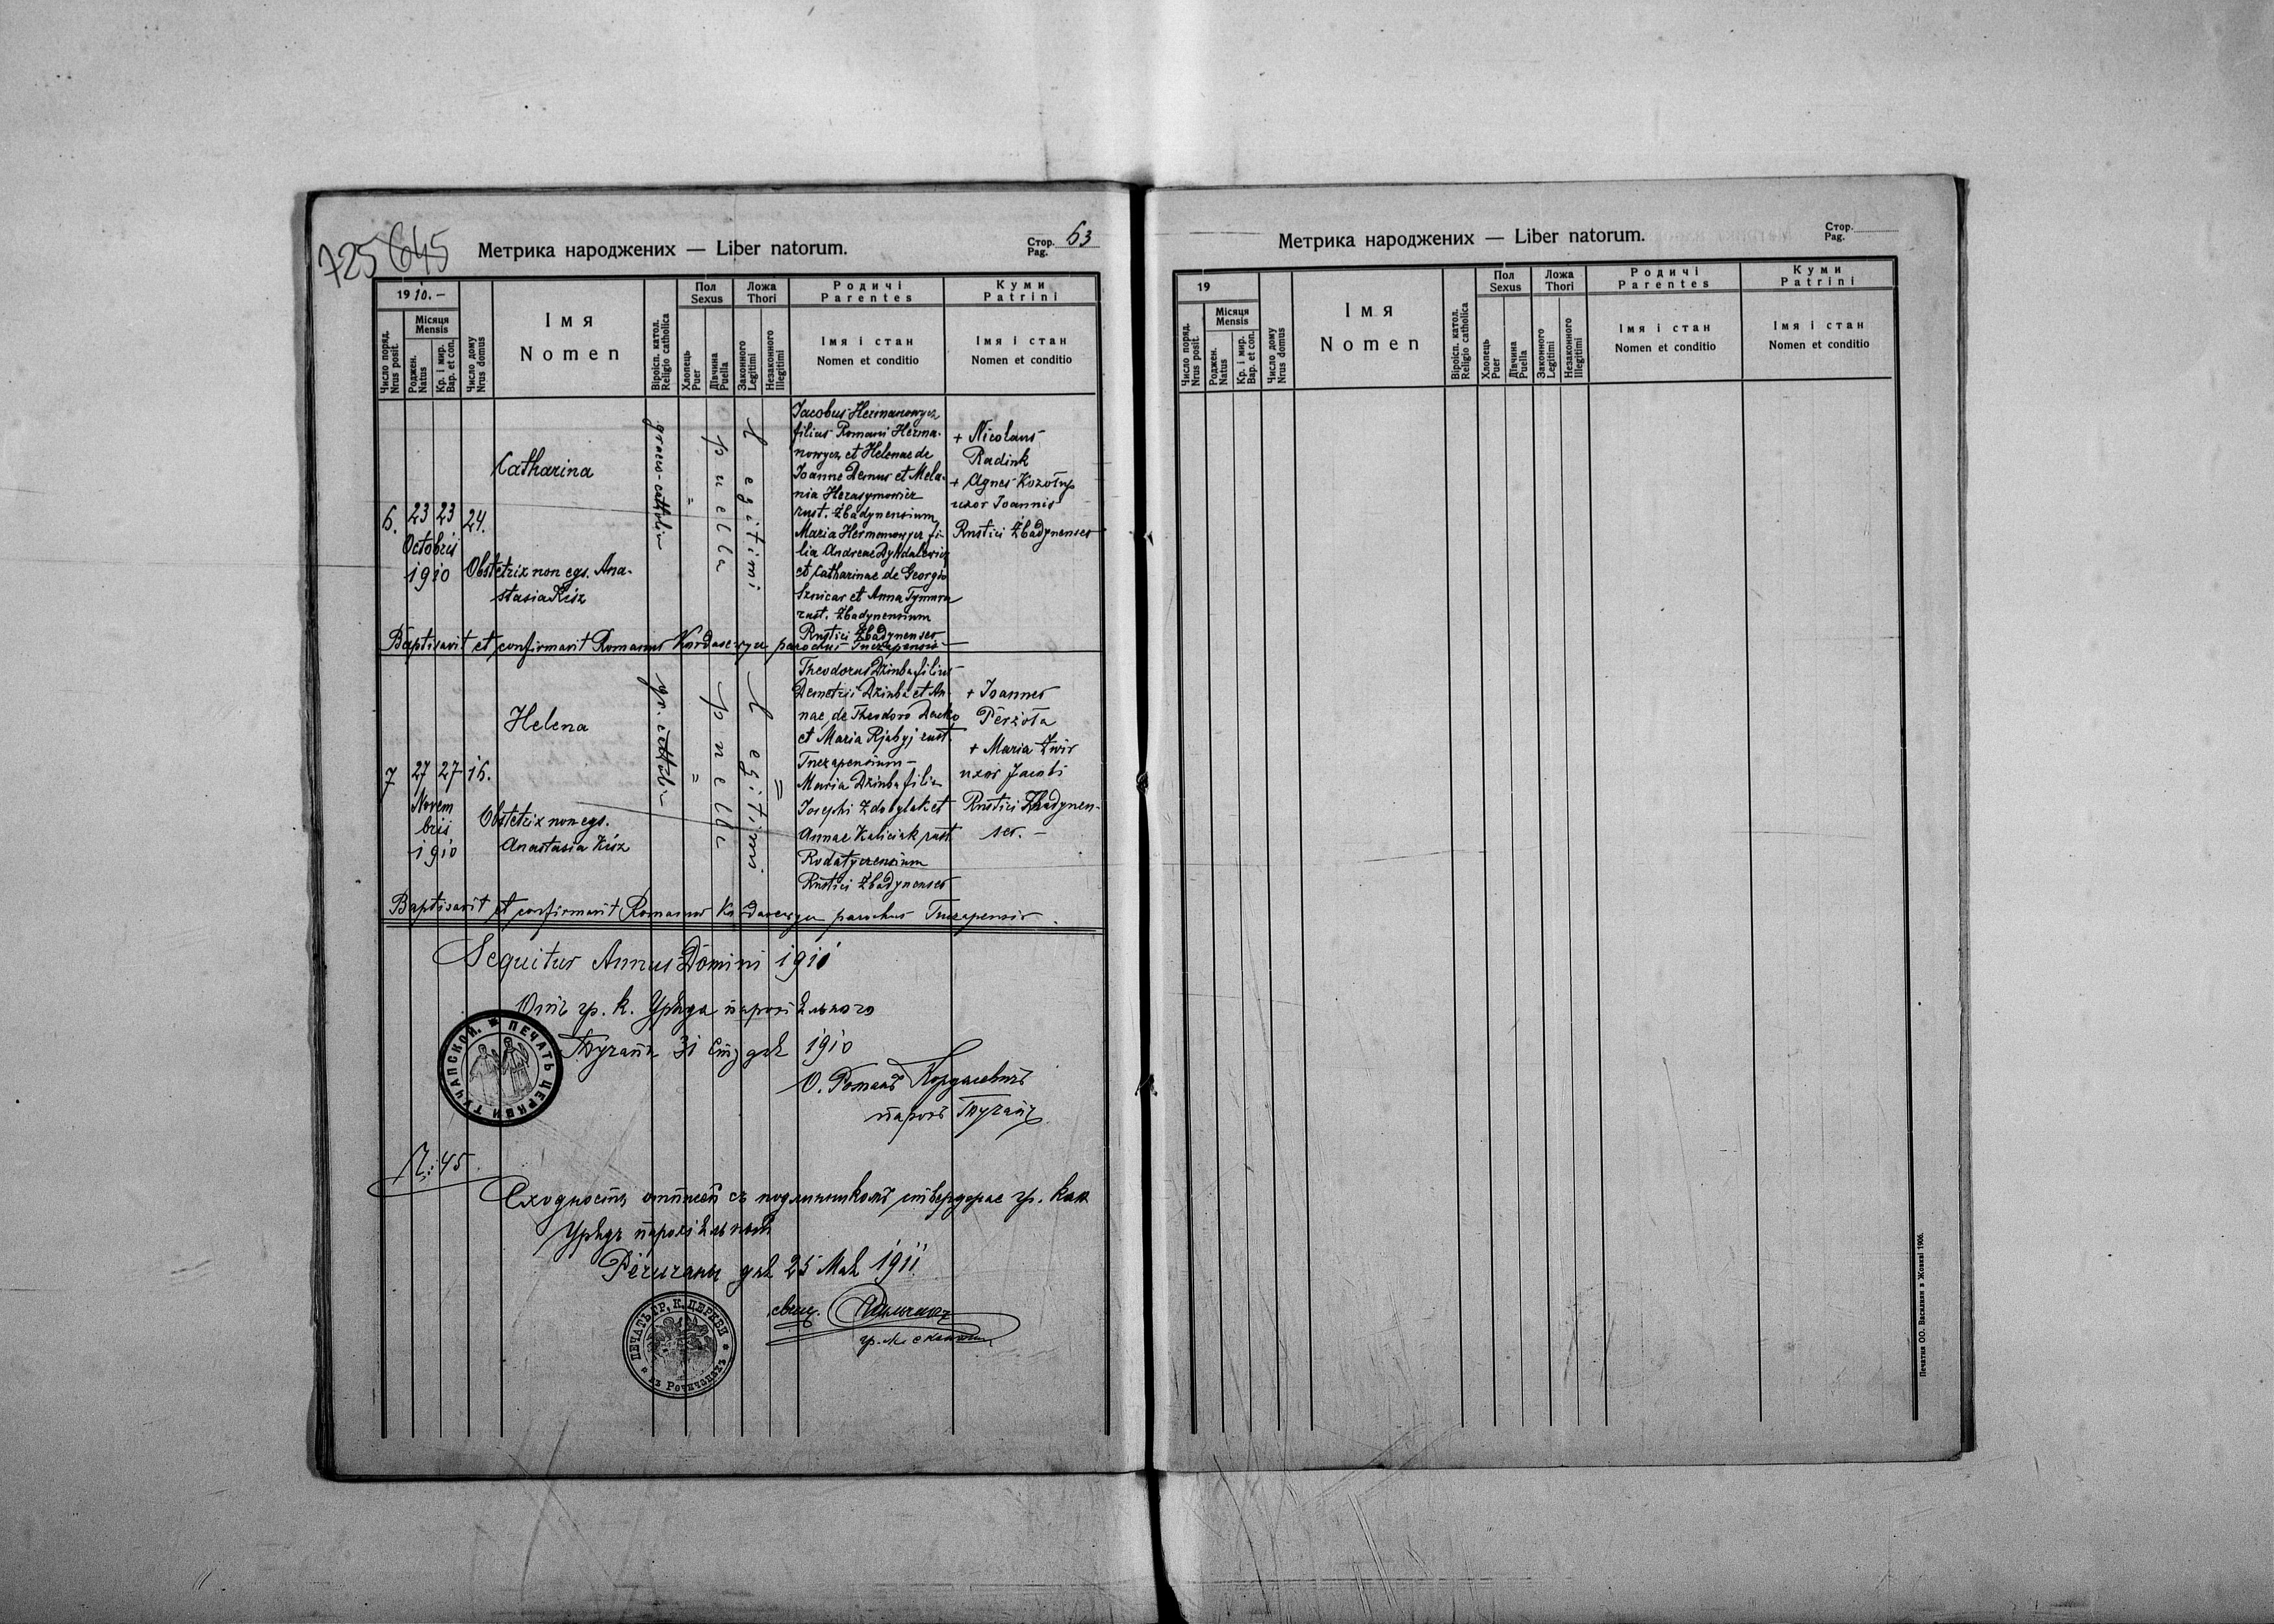 725 645
Метрика народжених — Liber natorum.
Стор. 63
Pag.
1910.-
Число поряд.
Nrus posit.
Місяця
Mensis
Роджен.
Natus
Кр. і мир.
Bap. et con.
Число дому
Nrus domus
Імя
Nomen
Віроісп. катол.
Religio catholica
Пол
Sexus
Хлопець
Puer
Дівчина
Puella
Ложа
Thori
Законного
Legitimi
Незаконного
Illegitimi
Родичі
Parentes
Імя і стан
Nomen et conditio
Куми
Patrini
Імя і стан
Nomen et conditio
6.
23 23
Octobris
1910
24.
Catharina
Obstetrix non egs. Ana-
stasia Kisz
graeco-catholic
"
puella
Legitimi
Jacobus Hermanowycz
filius Romani Herma-
nowycz et Helenae de
Joanne Demus et Mela-
nia Herasymowicz
rust. Zbadynensium
Maria Hermanowycz fi-
lia Andreae Dyhdalewicz
et Catharinae de Georgio
Sznicar et Anna Tymura
rust. Zbadynensium
Rustici Zbadynenses
+ Nicolaus
Radink
+ Agnes Kozołup
uxor Joannis
Rustici Zbadynenses
Baptisavit et confirmavit Romanus Kordasewycz parochus Tuczapensis
7
27 27
Novem
bris
1910
16.
Helena
Obstetrix non egs.
Anastasia Kisz
gr. cathol.
"
puella
Legitimi
"
Theodorus Dziuba filius
Demetrii Dziuba et An-
nae de Theodoro Dacko
et Maria Rjabyj rust.
Tuczapensium -
Maria Dziuba filia
Josephi Zdobylak et
Annae Kaliciak rust.
Rodatyczensium
Rustici Zbadynenses
+ Joannes
Perzoła
+ Maria Żwir
uxor Jacobi
Rustici Zbadynen-
ses. -
Baptisavit et confirmavit Romanus Kordasewycz parochus Tuczapensis.
Sequitur Annus Domini 1911
Отъ гр. к. Уряда парохіѧльного
Тучапы 31 Студня 1910
О. Романъ Кордасевичъ
парохъ Тучапъ
ПЕЧАТЬ ЦЕРКВИ ТУЧАПСКОЙ.
Ч: 45
Сходность съ подлинникомъ ствердорае гр. кат
Урядъ парохіѧльный
Речичаны дня 25 Мая 1911
свящ.
ПЕЧАТЬ ГР. К. ЦЕРКВИ
въ Речичанахъ
Метрика народжених — Liber natorum.
Стор.
Pag.
19
Число поряд.
Nrus posit.
Місяця
Mensis
Роджен.
Natus
Кр. і мир.
Bap. et con.
Число дому
Nrus domus
Імя
Nomen
Віроісп. катол.
Religio catholica
Пол
Sexus
Хлопець
Puer
Дівчина
Puella
Ложа
Thori
Законного
Legitimi
Незаконного
Illegitimi
Родичі
Parentes
Імя і стан
Nomen et conditio
Куми
Patrini
Імя і стан
Nomen et conditio
Печатня ОО. Василиян в Жовкві 1906.